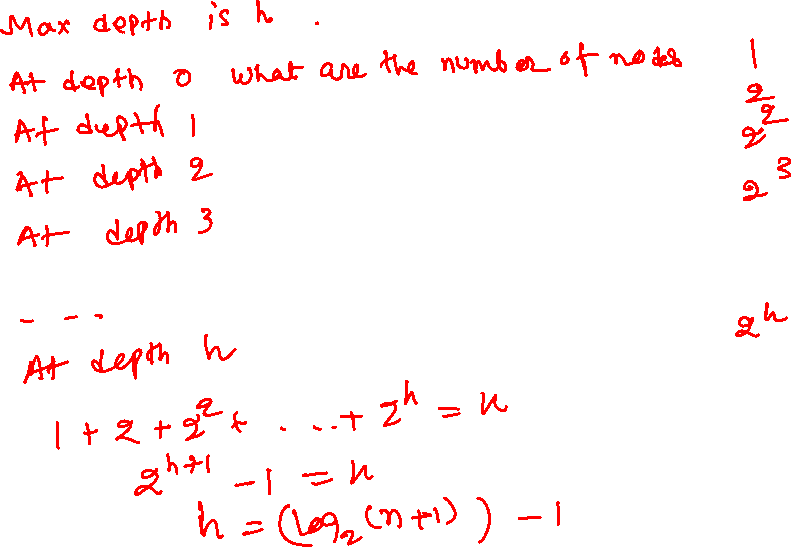 Max depth is h .
At depth 0 what are the number of nodes 1
At depth 1 2
At depth 2 2^2
At depth 3 2^3
- - - -
At depth h 2^h
1 + 2 + 2^2 + . . . + 2^h = n
2^h+1 - 1 = n
h = (log_2 (n+1) ) - 1